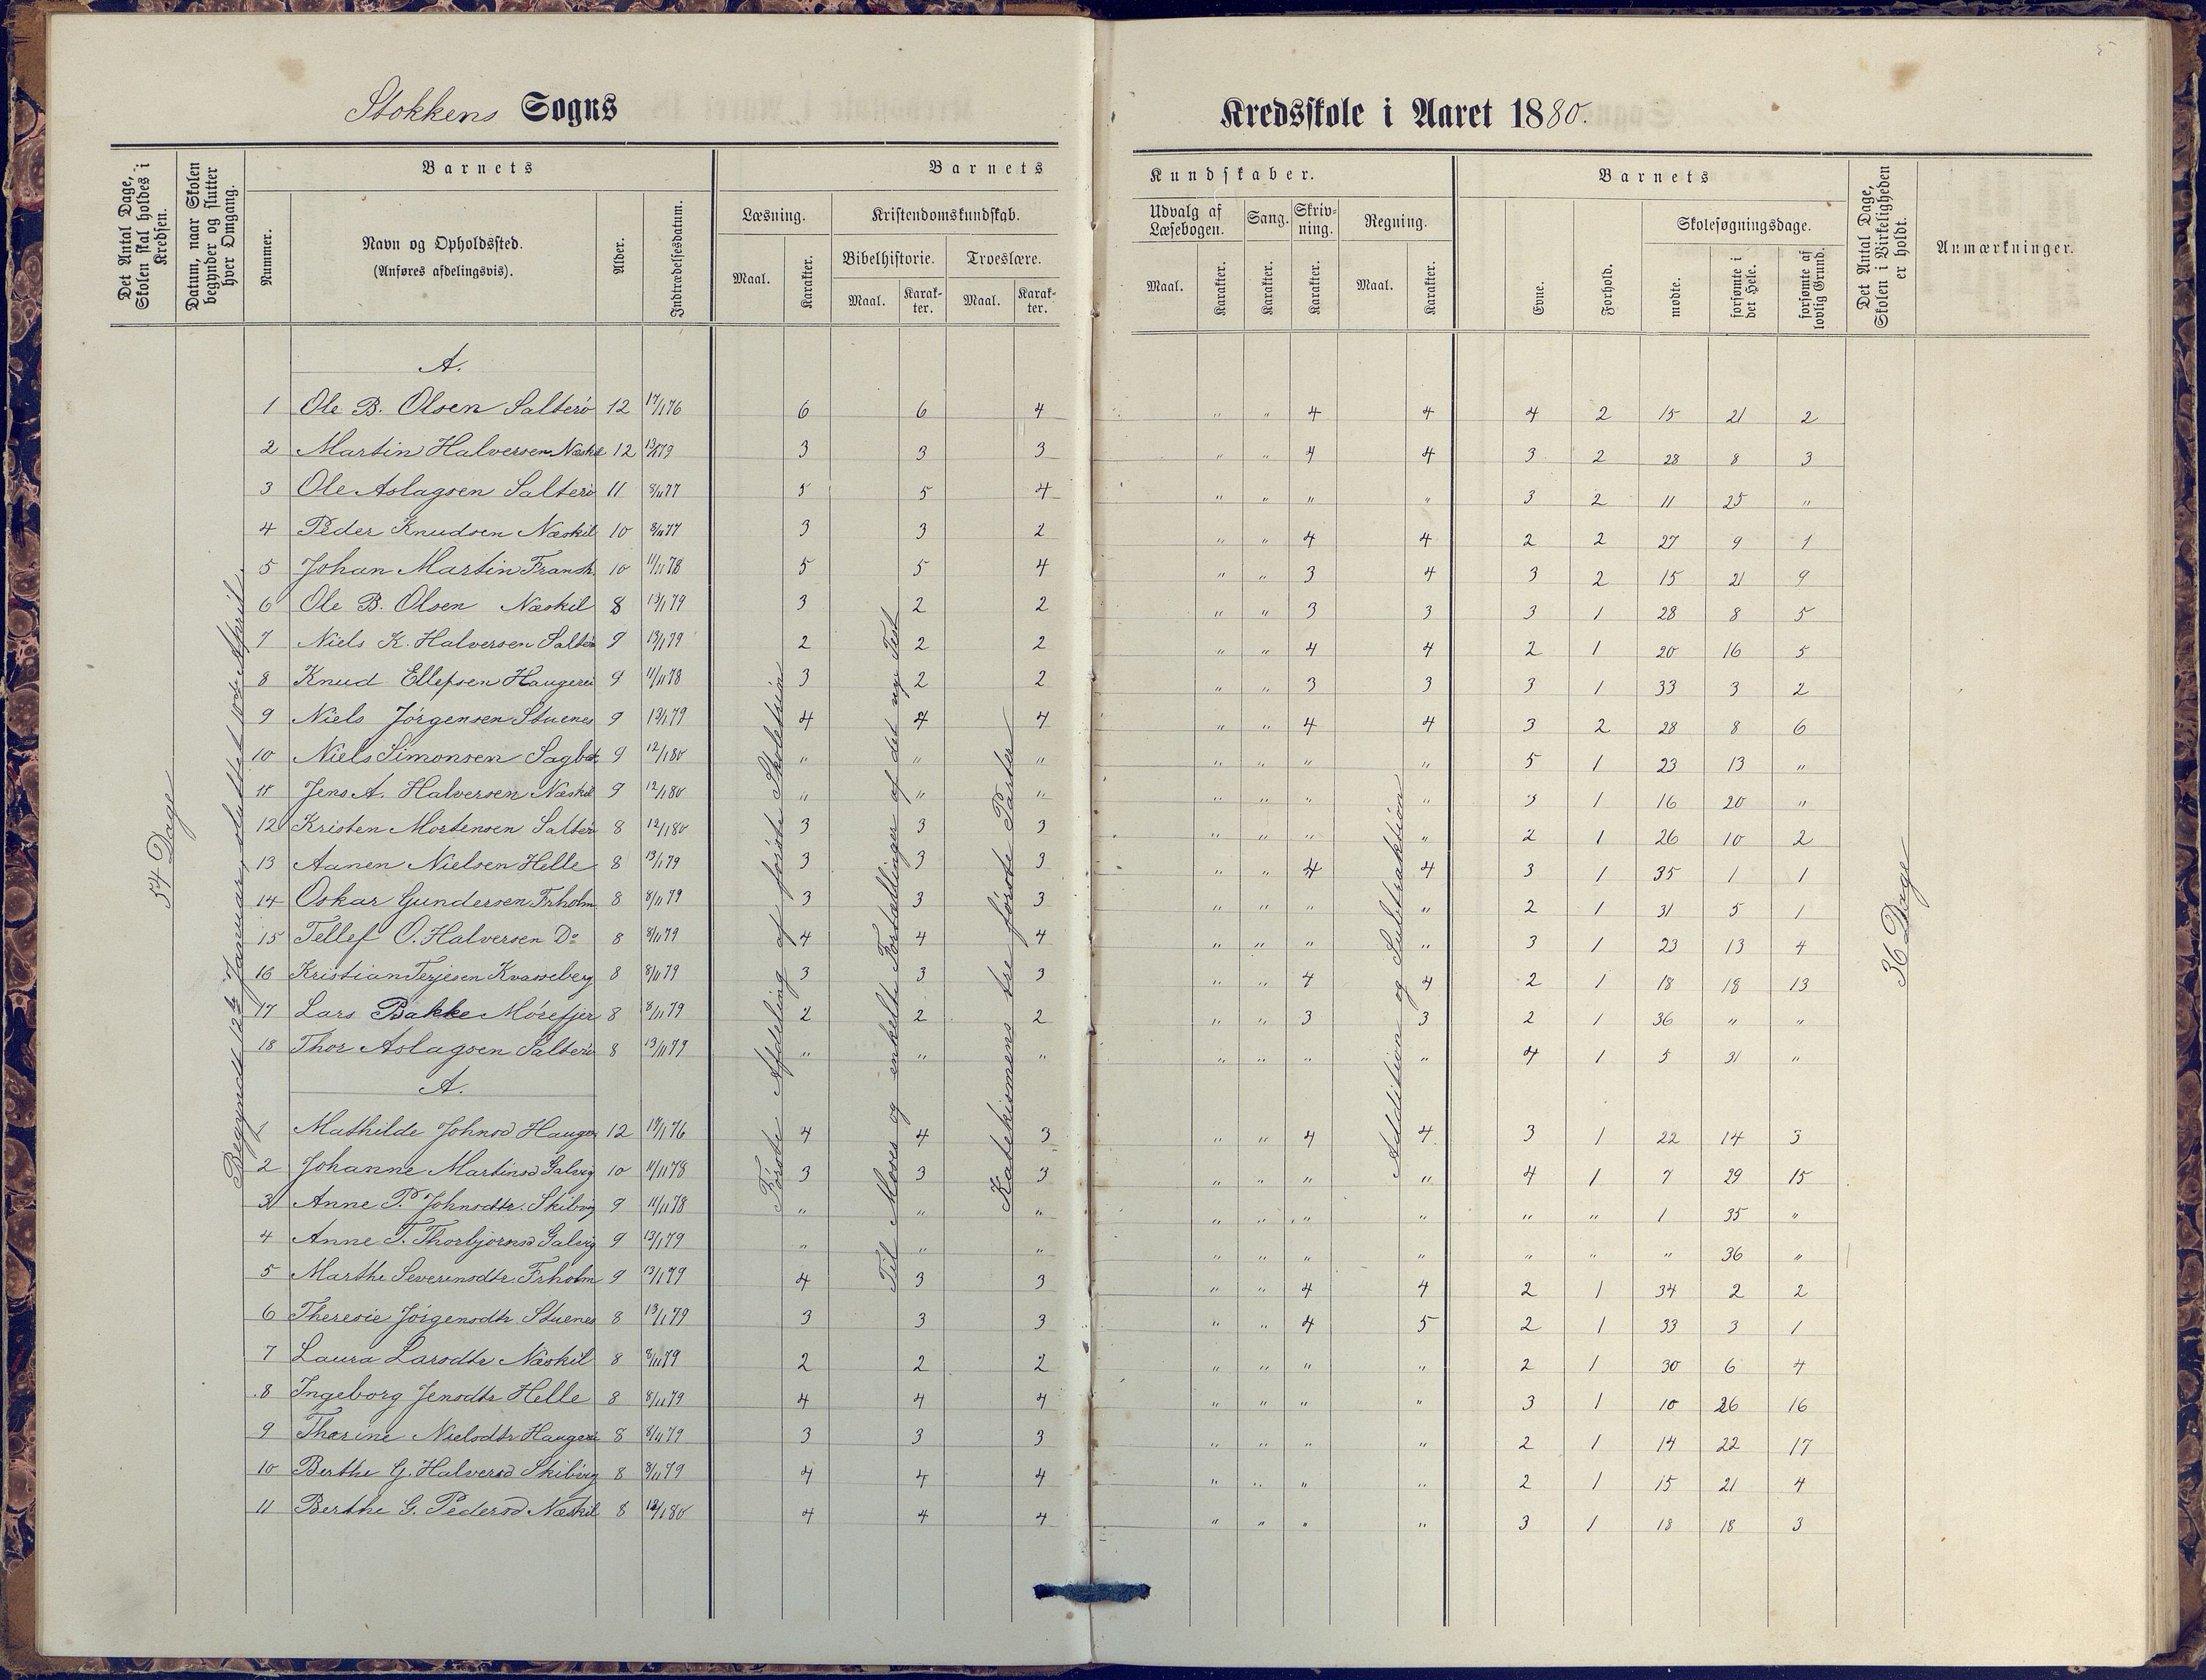 Stokkens Sogns
Kredsskole i Aaret 1880.
Det Antal Dage, Skolen skal holdes i Kredsen.
Datum, naar Skolen begynder og slutter hver Omgang.
Barnets
Nummer.
Navn og Opholdssted.
(Anføres afdelingsvis).
Alder.
Indtrædelsesdatum.
Barnets
Læsning.
Maal.
Karakter.
Kristendomskundskab.
Bibelhistorie.
Maal.
Karakter.
Troeslære.
Maal.
Karakter.
Kundskaber.
Udvalg af Læsebogen.
Maal.
Karakter.
Sang.
Karakter.
Skrivning.
Karakter.
Regning.
Maal.
Karakter.
Barnets
Evne.
Forhold.
Skolesøgningsdage.
mødte.
forsømte i det Hele.
forsømte af lovlig Grund.
Det Antal Dage, Skolen i Virkeligheden er holdt.
Anmærkninger.
54 Dage
Begyndt 12te Januar, sluttet 10de April.
Første Afdeling af første Skoletrin
Til Moses og enkelte Fortællinger af det nye Test
Katekismens tre første Parter
Addition og Subtraktion
36 Dage
A.
1 Ole B. Olsen Salterö 12 17/1 76 6 6 4 " " 4 4 4 2 15 21 2
2 Martin Halversen Næskil 12 3 3 3 " " 4 4 3 2 28 8 3
3 Ole Aslagsen Salterö 11 8/11 77 5 5 4 " " " " 3 2 11 25 "
4 Peder Knudsen Næskil 10 8/11 77 3 3 2 " " 4 4 2 2 27 9 1
5 Johan Martin Fransh. 10 11/11 78 5 5 4 " " 3 4 3 2 15 21 9
6 Ole B. Olsen Næskil 8 13/1 79 3 2 2 " " 3 3 3 1 28 8 5
7 Niels K. Halversen Salterö 9 13/1 79 2 2 2 " " 4 4 2 1 20 16 5
8 Knud Ellefsen Haugerei 9 11/11 78 3 2 2 " " 3 3 3 1 33 3 2
9 Niels Jörgensen Stuenes 9 13/1 79 4 4 4 " " 4 4 3 2 28 8 6
10 Niels Simonsen 9 12/1 80 " " " " " " " 5 1 23 13 "
11 Jens A. Halversen Næskil 9 12/1 80 " " " " " " " 3 1 16 20 "
12 Kristen Mortensen Salterö 8 12/1 80 3 3 3 " " " " 2 1 26 10 2
13 Aanen Nielsen Helle 8 13/1 79 3 3 3 " " 4 4 3 1 35 1 1
14 Oskar Gundersen Frholm 8 8/11 79 3 3 3 " " " " 2 1 31 5 1
15 Tellef O. Halversen Do 8 8/11 79 4 4 4 " " " " 3 1 23 13 4
16 Kristian Terjesen Kvasseberg 8 8/11 79 3 3 3 " " 4 4 2 1 18 18 13
17 Lars Bakke Mörefjer 8 8/11 79 2 2 2 " " 3 3 2 1 36 " "
18 Thor Aslagsen Salterö 8 13/11 79 " " " " " " " 4 1 5 31 "
A.
1 Mathilde Johnsd Haugen 12 17/1 76 4 4 3 " " 4 4 3 1 22 14 3
2 Johanne Martinsd Galvig 10 11/11 78 3 3 3 " " " " 4 1 7 29 15
3 Anne P. Johnsdtr. Skibvig 9 11/11 78 " " " " " " " " " 1 35 "
4 Anne T. Thorbjörnsd Galvig 9 13/1 79 " " " " " " " " " " 36 "
5 Marthe Severinsdtr. Frholm 9 13/1 79 4 3 3 " " 4 4 2 1 34 2 2
6 Theresie Jörgensdtr Stuenes 8 13/1 79 3 3 3 " " 4 5 2 1 33 3 1
7 Laura Larsdtr Næskil 8 8/11 79 2 2 2 " " " " 2 1 30 6 4
8 Ingeborg Jensdtr Helle 8 8/11 79 4 4 4 " " " " 3 1 10 26 16
9 Thorine Nielsdtr Haugerei 8 8/11 79 3 3 3 " " " " 2 1 14 22 17
10 Berthe G. Halversd Skibvig 8 8/11 79 4 4 4 " " " " 2 1 15 21 4
11 Berthe G. Pedersd Næskil 8 12/1 80 4 4 4 " " " " 3 1 18 18 3